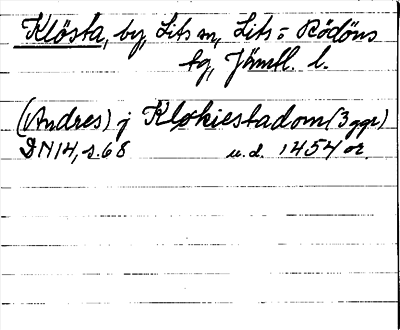 Klösta, by, Lits sn, Lits o Rödöns
tg, Jämtl. l.
(Andres) j Klokiestadom (3 ggr)
DN14, s. 68 u.d. 1454 or.